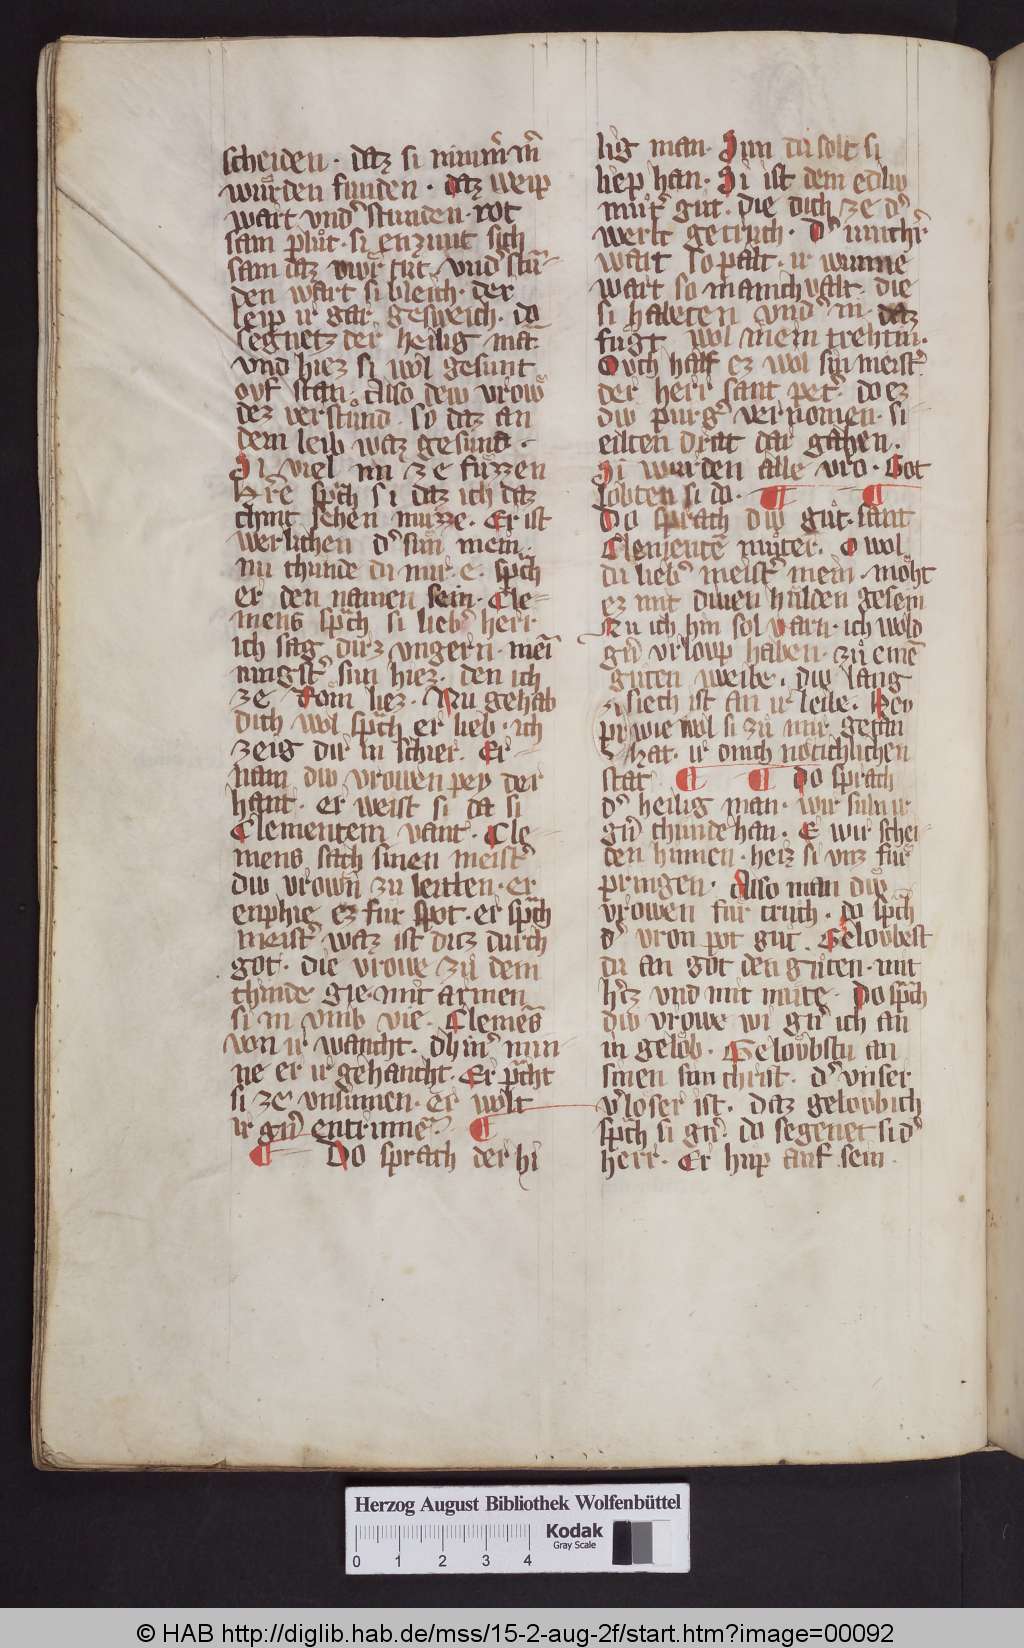 scheiden · daz si nimm̄ m̄
wuͤrden funden · daz weip
wart vnd' stunden · rot
sam pluͦt · si enzunt sich
sam daz viwr tut · vnd' stuͦ-
den wart si bleich · der
leip ir gar gesweich · do
segnetz der heilig mā
vnd hiez si wol gesunt
ovf stan · Also dew vrow
dez verstuͦnd · so daz an
dem leib waz gesund ·
Si viel im ze fuͤzzen
sp̄ch si daz ich daz
chint sehen muzze · Er ist
werlichen d' sun mein ·
nu chunde du mir · e · sp̄ch
er den namen sein · Cle-
mens sp̄ch si lieb' herr
ich sag dirz vngern · mei
mingst' sun hiez · den ich
ze Rom liez · Nu gehab
dich wol sp̄ch er lieb · ich
zeig dir in schier · Er
nam diu vrowen pey der
hant · er weist si da si
Clementem vant · Cle-
mens sach sinen meist'
diu vrown zu leitten · er
enphie ez fuͤr spot · er sp̄ch
meist' waz ist dicz durch
got · die vrowe zuͦ dem
chinde gie · mit armen
si in vmb vie · Clemēs
von ir wancht · dhein' min-
ne er ir gehancht · Er p̄cht
si ze vnsinnen · er wolt
ir gn̄ entrinnē · ¶
¶ Do sprach der hi
lig man · Sun du solt si
liep han · Si ist dem ediliv
muͦt' gut · die dich ze d'
werlt getruch · D'
wart so palt · ir winne
wart so manichvalt · die
si habeten vnd' in daz
fuͤgt wol mein trehtin ·
Ouch half ez wol sin meist'
der herr sant pet' · do ez
diw purg' vernomen · si
eilten drat dar gahen ·
Si wurden alle vro · Got
lobten si do · ¶ ¶
Do sprach diw guͦt · sant
Clementē muͦter · O wol
du lieb' meist' mein · moͤht
ez mit diwen hulden gesein
Nu ich hin sol varn · ich wold
gn̄ vrloup haben · zuͦ einē
guten weibe · diw lang
siech ist an ir leibe · Hey
p̄r wie wol si zuͦ mir getan
hat · ir
stat ¶ ¶ Do sprach
d' heilig man · wir suln ir
gn̄ chunde han · E wir schei-
den hinnen · heiz si vnz fuͤr
pringen · Also man diw
vrowen fuͤr truch · do sp̄ch
d' vron pot gut · Geloubest
du an got den guͦten · mit
h'tz vnd mit muͦte · Do sp̄ch
diw vrowe wi gn̄ ich an
in gelob · Geloubstu an
sinen sun christ · d' vnser
v'loser ist · daz geloubich
sp̄ch si gn̄ · do segenet si d'
herr · Er hup auf sein ·
Herzog August Bibliothek Wolfenbüttel
0 1 2 3 4
Kodak
Gray Scale
© HAB http://diglib.hab.de/mss/15-2-aug-2f/start.htm?image=00092